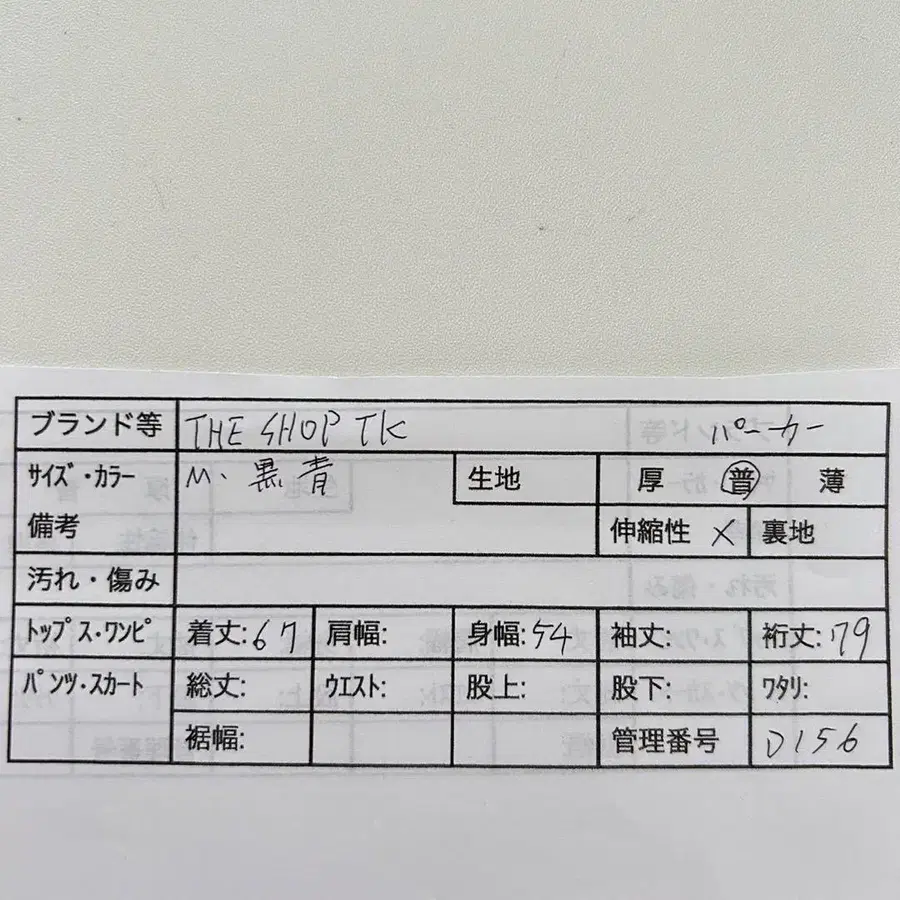 ブランド等 THE SHOP TK パーカー
サイズ・カラー M、黒、青 生地 厚 普 薄
備考 伸縮性 × 裏地
汚れ・傷み
トップス・ワンピ 着丈:67 肩幅: 身幅:54 袖丈: 裄丈:79
パンツ・スカート 総丈: ウエスト: 股上: 股下: ワタリ:
裾幅: 管理番号 D156